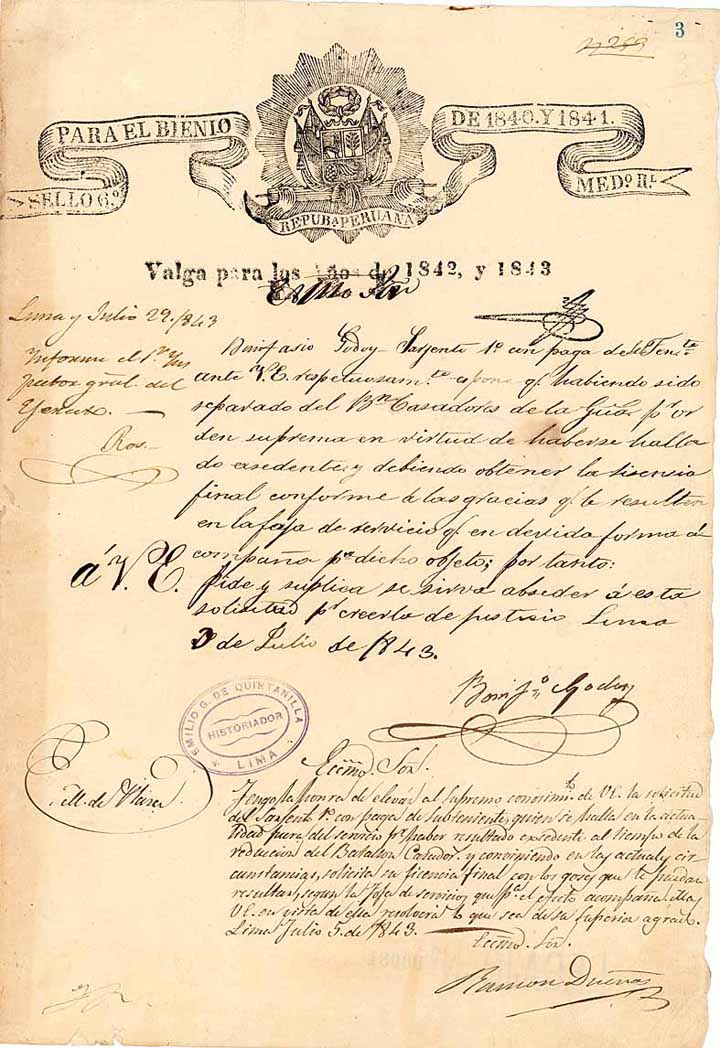 3
PARA EL BIENIO
DE 1840. Y 1841.
SELLO 6.º
MED.º R.L
REPUB.ª PERUANA
Valga para los Años de 1842, y 1843
Exmo Sor
Lima y Julio 22./843
Informe el 1.º Ins
pector gral. del
Ejercito. —
Ros.
Bonifasio Godoy Sarjento 1.º con paga de Subteni
ante V.E. respetuosam.te espone q.e habiendo sido
separado del B.n Casadores de la Guar p.r or
den suprema en virtud de haberse halla
do exedente; y debiendo obtener la lisensia
final conforme á las gracias q.e le resulten
en la foja de servicio q.e en devida forma á
compaña p.a dicho objeto; por tanto:
á V.E.
pide y suplica se sirva abseder á esta
solicitud p.r creerla de justisia Lima
3 de Julio de 1843.
Bonif.o Godoy
EMILIO G. DE QUINTANILLA
HISTORIADOR
LIMA
Ecsmo. Sor.
Tengo la honra de elevár al supremo conosim.to de VE. la solicitud
del Sarjento 1.º con paga de subteniente, quien se halla en la actua
lidad fuera del servicio p.r haber resultado excedente al tiempo de la
reducion del Batallon Casador. y conviniendo en las actuales cir
cunstancias, solicita su licencia final con los goses que le puedan
resultar, segun la foja de servicios, que p.a el efecto acompaña. Mas
VE. en vista de ella resolverá lo que sea de su superior agrado.
Lima Julio 5. de 1843.
Ecsmo. Sor.
Ramon Dueñas